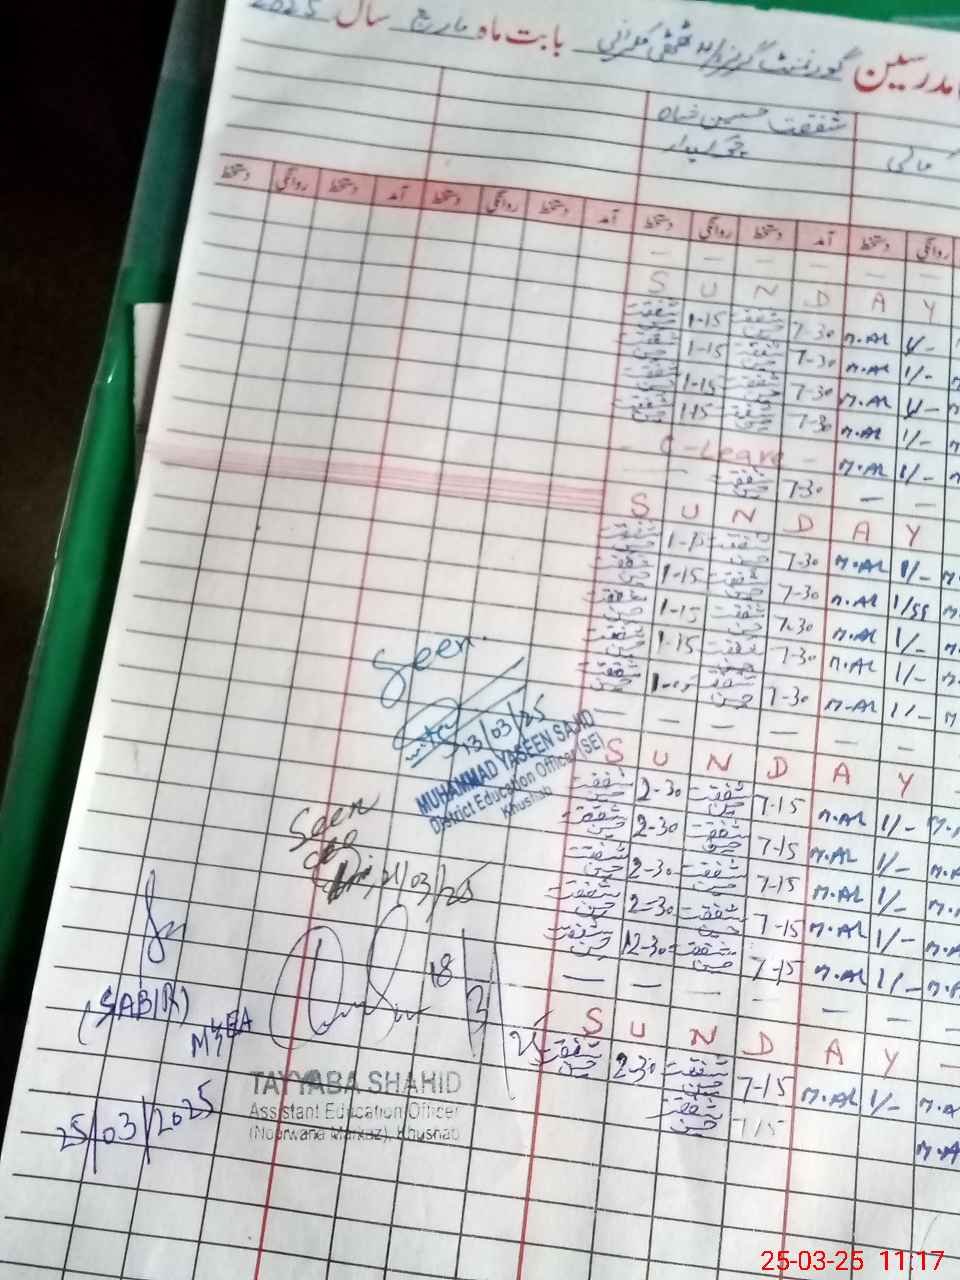 مدرسین گورنمنٹ گرلز بابت ماہ مارچ سال 2025
شفقت حسین شاہ
چوکیدار مالی
آمد دستخط روانگی دستخط آمد دستخط روانگی دستخط آمد دستخط روانگی دستخط
— — — — — —
S U N D A Y
شفقت حسین 1-15 شفقت حسین 7-30 M.AL 1/-
شفقت حسین 1-15 شفقت حسین 7-30 M.AL 1/-
شفقت حسین 1-15 شفقت حسین 7-30 M.AL 1/-
شفقت حسین 1-15 شفقت حسین 7-30 M.AL 1/-
— C-Leave — M.AL 1/-
شفقت حسین 7-30 — —
S U N D A Y
شفقت حسین 1-15 شفقت حسین 7-30 M.AL 1/-
شفقت حسین 1-15 شفقت حسین 7-30 M.AL
شفقت حسین 1-15 شفقت حسین 7-30 M.AL 1/-
شفقت حسین 1-15 شفقت حسین 7-30 M.AL 1/-
شفقت حسین شفقت حسین 7-30 M.AL 1/-
— — — — — —
S U N D A Y
شفقت حسین 2-30 شفقت حسین 7-15 M.AL 1/-
شفقت حسین 2-30 شفقت حسین 7-15 M.AL 1/-
شفقت حسین 2-30 شفقت حسین 7-15 M.AL 1/-
شفقت حسین 2-30 شفقت حسین 7-15 M.AL 1/-
شفقت حسین 12-30 شفقت حسین 7-15 M.AL 1/-
— — — — — —
S U N D A Y
شفقت حسین 2-30 شفقت حسین 7-15 M.AL 1/-
شفقت حسین 7-15
Seen
13/03/25
MUHAMMAD YASEEN SAJID
District Education Officer (SE)
Khushab
Seen
21/03/25
18/3/25
TAYYABA SHAHID
Assistant Education Officer
(Noorwana Markaz), Khushab
(SABIR)
MEA
25/03/2025
25-03-25 11:17